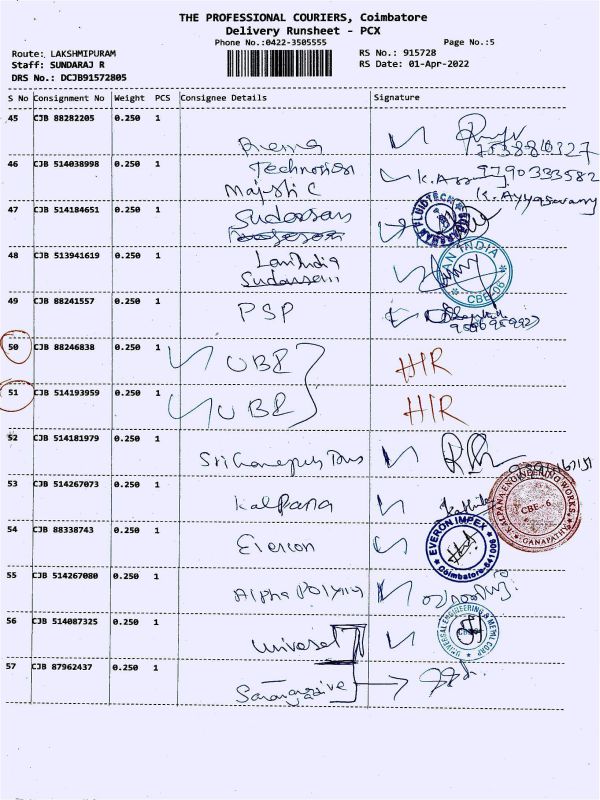 THE PROFESSIONAL COURIERS, Coimbatore
Delivery Runsheet - PCX
Phone No.:0422-3505555
Page No.:5
Route: LAKSHMIPURAM
RS No.: 915728
Staff: SUNDARAJ R
RS Date: 01-Apr-2022
DRS No.: DCJB91572805
S No Consignment No Weight PCS Consignee Details Signature
45 CJB 88282205 0.250 1
46 CJB 514038998 0.250 1
9790333582
K. Ayyaswamy
47 CJB 514184651 0.250 1
Sudarsan
48 CJB 513941619 0.250 1
Lan India
Sudarsan
LAN INDIA
CBE-06
49 CJB 88241557 0.250 1
PSP
50 CJB 88246838 0.250 1
UBE
HIR
51 CJB 514193959 0.250 1
UBE
HIR
52 CJB 514181979 0.250 1
53 CJB 514267073 0.250 1
Kalpana
KALPANA ENGINEERING WORKS
CBE-6
GANAPATHY
54 CJB 88338743 0.250 1
Evercon
EVERON IMPEX
Coimbatore-641006
55 CJB 514267080 0.250 1
Alpha
56 CJB 514087325 0.250 1
Universel
UNIVERSAL ENGINEERING & METAL CORP
57 CJB 87962437 0.250 1